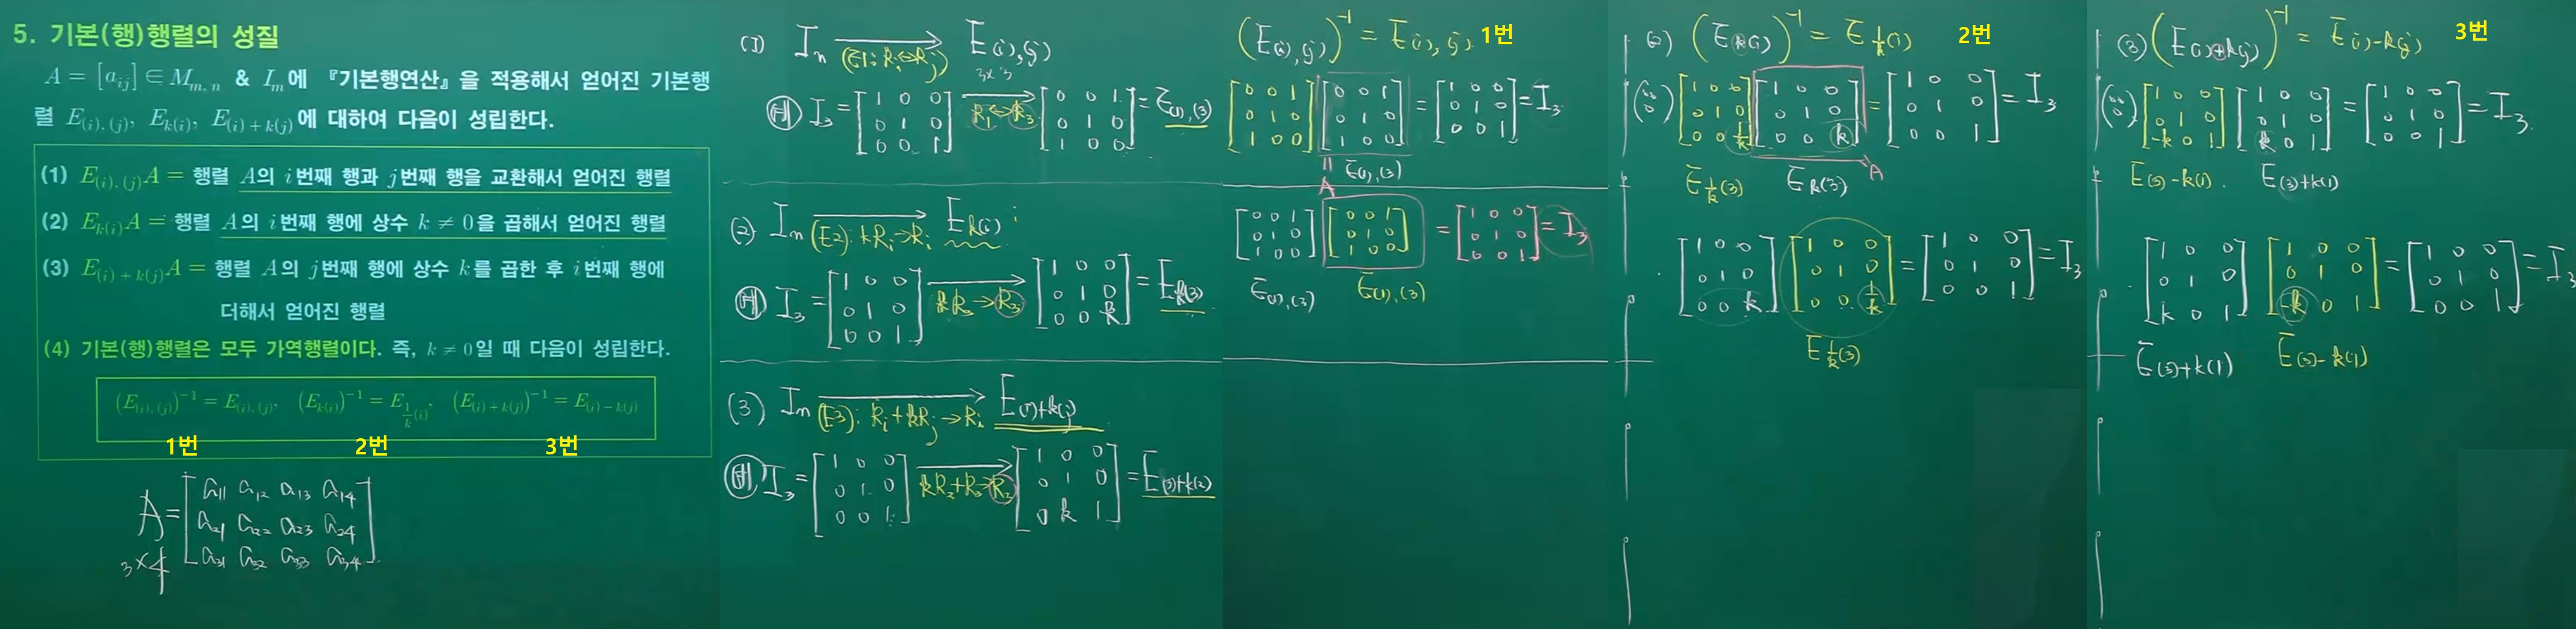 5. 기본(행)행렬의 성질
A = [a_{ij}] ∈ M_{m, n} & I_m에 『기본행연산』을 적용해서 얻어진 기본행
렬 E_{(i), (j)}, E_{k(i)}, E_{(i)+k(j)}에 대하여 다음이 성립한다.
(1) E_{(i), (j)}A = 행렬 A의 i번째 행과 j번째 행을 교환해서 얻어진 행렬
(2) E_{k(i)}A = 행렬 A의 i번째 행에 상수 k ≠ 0을 곱해서 얻어진 행렬
(3) E_{(i)+k(j)}A = 행렬 A의 j번째 행에 상수 k를 곱한 후 i번째 행에
더해서 얻어진 행렬
(4) 기본(행)행렬은 모두 가역행렬이다. 즉, k ≠ 0일 때 다음이 성립한다.
(E_{(i), (j)})^{-1} = E_{(i), (j)}, (E_{k(i)})^{-1} = E_{\frac{1}{k}(i)}, (E_{(i)+k(j)})^{-1} = E_{(i)-k(j)}
1번 2번 3번
A = [a_{11} a_{12} a_{13} a_{14}
a_{21} a_{22} a_{23} a_{24}
a_{31} a_{32} a_{33} a_{34}]
3×4
(1) I_n → E_{(i),(j)}
(E1: R_i ↔ R_j) 3×3
I_3 = [1 0 0 / 0 1 0 / 0 0 1] R_1 ↔ R_3 → [0 0 1 / 0 1 0 / 1 0 0] = E_{(1),(3)}
(2) I_n → E_{k(i)} i
(E2): kR_i → R_i
I_3 = [1 0 0 / 0 1 0 / 0 0 1] kR_3 → R_3 [1 0 0 / 0 1 0 / 0 0 k] = E_{k(3)}
(3) I_n → E_{(i)+k(j)}
(E3): R_i + kR_j → R_i
I_3 = [1 0 0 / 0 1 0 / 0 0 1] kR_2 + R_3 → R_3 [1 0 0 / 0 1 0 / 0 k 1] = E_{(3)+k(2)}
(E_{(i),(j)})^{-1} = E_{(i),(j)}. 1번
[0 0 1 / 0 1 0 / 1 0 0] [0 0 1 / 0 1 0 / 1 0 0] = [1 0 0 / 0 1 0 / 0 0 1] = I_3
E_{(1),(3)}
A
[0 0 1 / 0 1 0 / 1 0 0] [0 0 1 / 0 1 0 / 1 0 0] = [1 0 0 / 0 1 0 / 0 0 1] = I_3
E_{(1),(3)} E_{(1),(3)}
(2) (E_{k(i)})^{-1} = E_{\frac{1}{k}(i)} 2번
(∵) [1 0 0 / 0 1 0 / 0 0 \frac{1}{k}] [1 0 0 / 0 1 0 / 0 0 k] = [1 0 0 / 0 1 0 / 0 0 1] = I_3
E_{\frac{1}{k}(3)} E_{k(3)} A
[1 0 0 / 0 1 0 / 0 0 k] [1 0 0 / 0 1 0 / 0 0 \frac{1}{k}] = [1 0 0 / 0 1 0 / 0 0 1] = I_3
E_{\frac{1}{k}(3)}
(3) (E_{(i)+k(j)})^{-1} = E_{(i)-k(j)} 3번
(∵) [1 0 0 / 0 1 0 / -k 0 1] [1 0 0 / 0 1 0 / k 0 1] = [1 0 0 / 0 1 0 / 0 0 1] = I_3.
E_{(3)-k(1)}. E_{(3)+k(1)}
[1 0 0 / 0 1 0 / k 0 1] [1 0 0 / 0 1 0 / -k 0 1] = [1 0 0 / 0 1 0 / 0 0 1] = I_3
E_{(3)+k(1)} E_{(3)-k(1)}